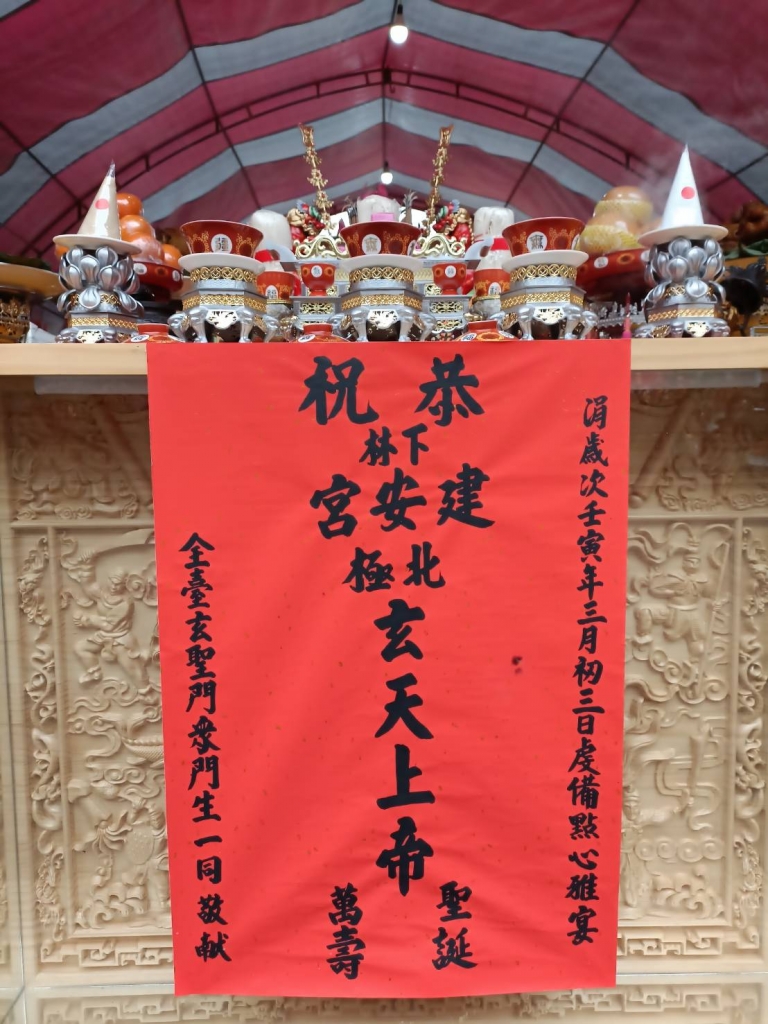 恭祝
下林
建安宮
北極
玄天上帝
聖誕
萬壽
涓歲次壬寅年三月初三日虔備點心雅宴
全臺玄聖門眾門生一同敬献